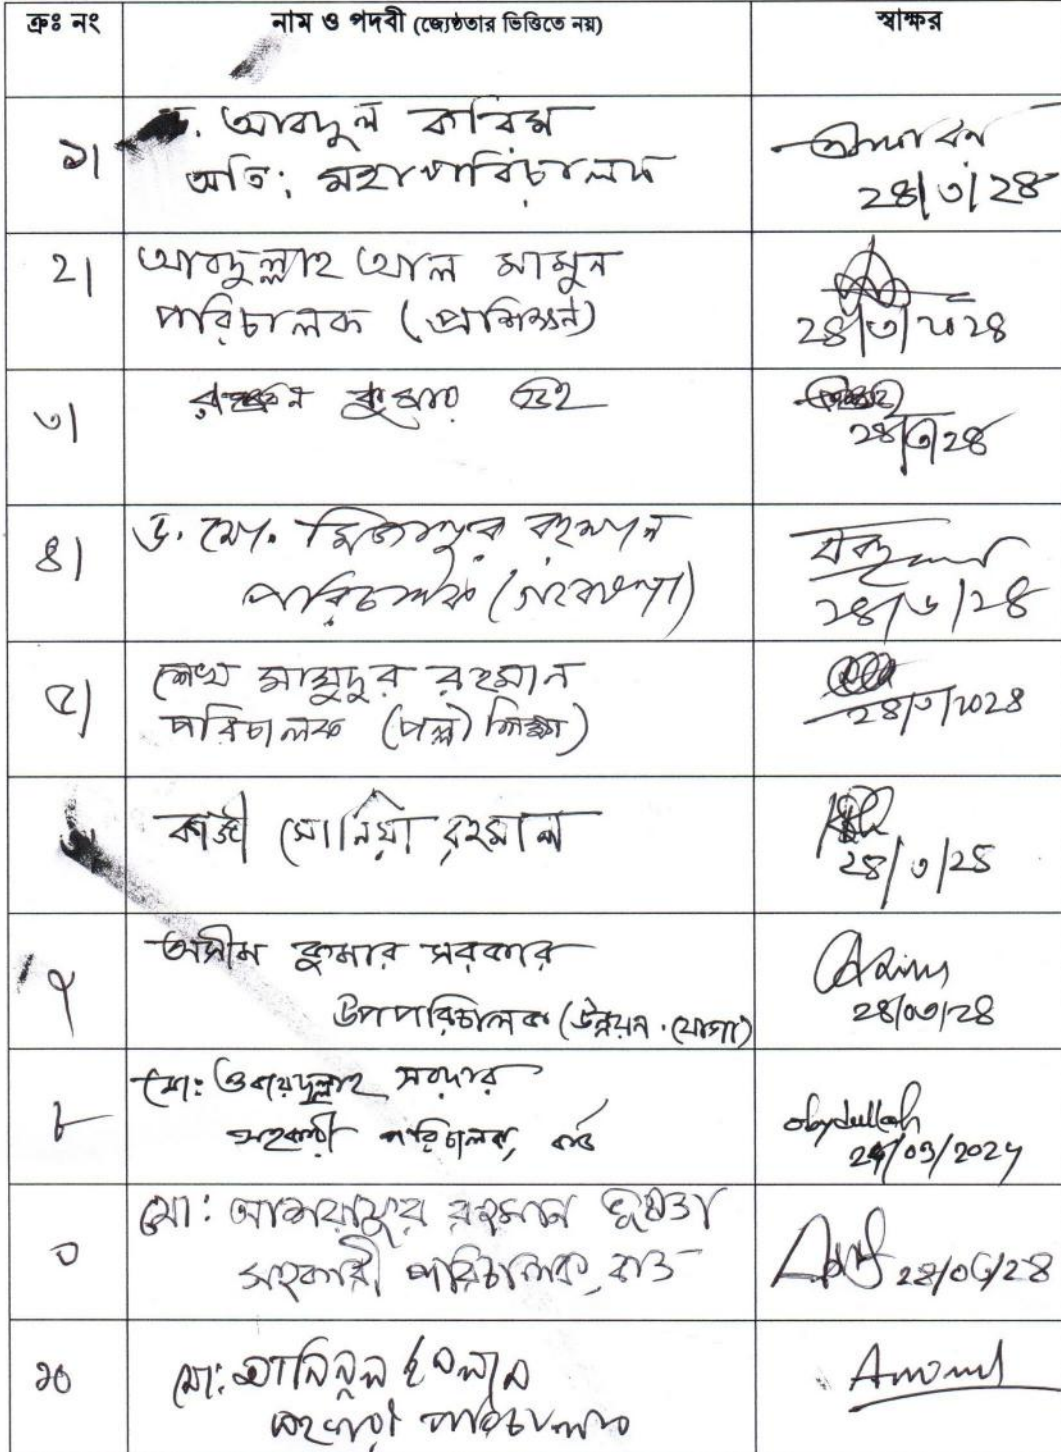 ক্রঃ নং নাম ও পদবী (জ্যেষ্ঠতার ভিত্তিতে নয়) স্বাক্ষর
১। ড. আবদুল করিম
অতি: মহাপরিচালক ২৪/৩/২৪
২। আবদুল্লাহ আল মামুন
পরিচালক (প্রশিক্ষণ) ২৪/৩/২০২৪
৩। কুমার গুহ ২৪/৩/২৪
৪। ড. মো. মিজানুর রহমান
পরিচালক (গবেষণা) ২৪/৩/২৪
৫। শেখ মাসুদুর রহমান
পরিচালক (পল্লী শিক্ষা) ২৪/৩/২০২৪
কাজী সোনিয়া রহমান ২৪/৩/২৪
৭ অসীম কুমার সরকার
উপপরিচালক (উন্নয়ন যোগা) ২৪/০৩/২৪
৮ মো: ওবায়দুল্লাহ সরদার obydullah
সহকারী পরিচালক, বার্ড 24/03/2024
৯ মো: আশরাফুর রহমান ভূঁইয়া
সহকারী পরিচালক, বার্ড ২৪/০৩/২৪
১০ মো:
সহকারী পরিচালক